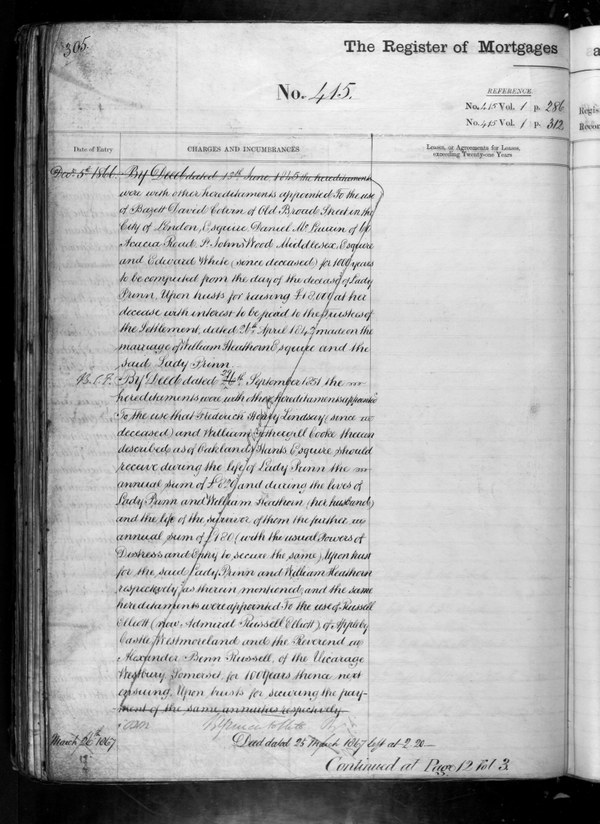 305.
The Register of Mortgages
No. 415.
REFERENCE
No. 415 Vol. 1 p. 286
No. 415 Vol. 1 p. 312
Date of Entry
CHARGES AND INCUMBRANCES
Leases, or Agreements for Leases,
exceeding Twenty-one Years
Decr. 5th 1866 By Deed dated 13th June 1845 the hereditaments
were with other hereditaments appointed To the use
of Bazett David Colvin of Old Broad Street in the
City of London, Esquire, Daniel of 60
Acacia Road St. Johns Wood Middlesex, Esquire
and Edward White (since deceased) for 1000 years
to be computed from the day of the decease of Lady
Prinn, Upon trusts for raising £12000 at her
decease with interest to be paid to the trustees of
the Settlement, dated 26th April 1842 made on the
marriage of William Heathorn Esquire and the
said Lady Prinn.
By Deed dated 24th September 1851 the
hereditaments were with other hereditaments appointed
To the use that Frederick Henry Lindsay (since
deceased) and William Cooke therein
described as of Oakland, Hants, Esquire, should
receive during the life of Lady Prinn the
annual sum of and during the lives of
Lady Prinn and William Heathorn (her husband)
and the life of the survivor of them the further
annual sum of £120 (with the usual Powers of
Distress and Entry to secure the same) Upon trust
for the said Lady Prinn and William Heathorn
respectively as therein mentioned, and the same
hereditaments were appointed To the use of Russell
Elliott (now Admiral Russell Elliott) of Appleby
Castle Westmoreland and the Reverend
Alexander Benn Russell, of the Vicarage
Westbury, Somerset, for 100 Years thence next
ensuing, Upon trusts for securing the pay-
ment of the same annuities respectively
March 26th 1867 Deed dated 25 March 1867 left at 2.20
Continued at Page 12 Vol 3.